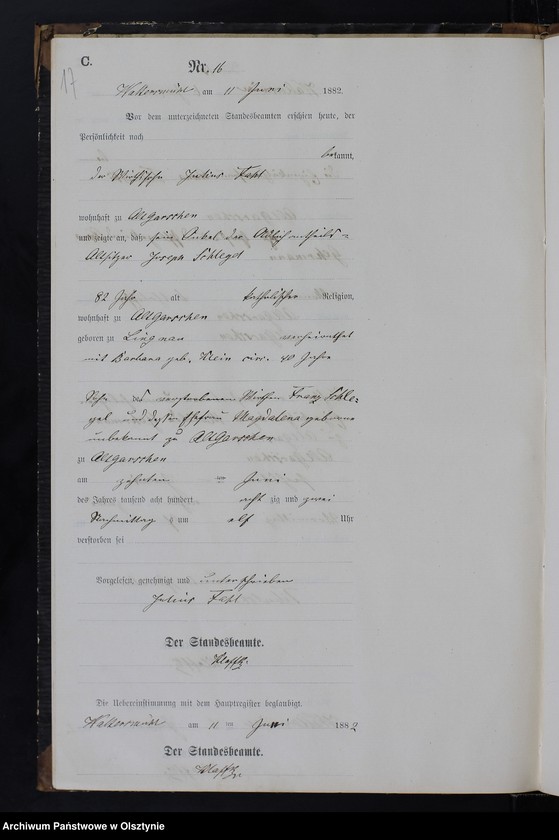 C.
17
Nr. 16
Walkeimühl am 11 Juni 1882.
Vor dem unterzeichneten Standesbeamten erschien heute, der
Persönlichkeit nach
bekannt,
der Julius Fahl
wohnhaft zu Altgarschen
und zeigte an, daß sein Onkel der
Altsitzer Joseph Schlegel
82 Jahr alt katholischer Religion,
wohnhaft zu Altgarschen
geboren zu Lingnau verheirathet
mit Barbara geb. Klein circ. 40 Jahre
Sohn des verstorbenen Wirthen Franz Schle-
gel und dessen Ehefrau Magdalena geborene
unbekannt zu Altgarschen
zu Altgarschen
am zehnten Juni
des Jahres tausend acht hundert acht zig und zwei
Nachmittag s um elf Uhr
verstorben sei
Vorgelesen, genehmigt und unterschrieben
Julius Fahl
Der Standesbeamte.
Die Uebereinstimmung mit dem Hauptregister beglaubigt.
am 11 ten Juni 1882
Der Standesbeamte.
Archiwum Państwowe w Olsztynie